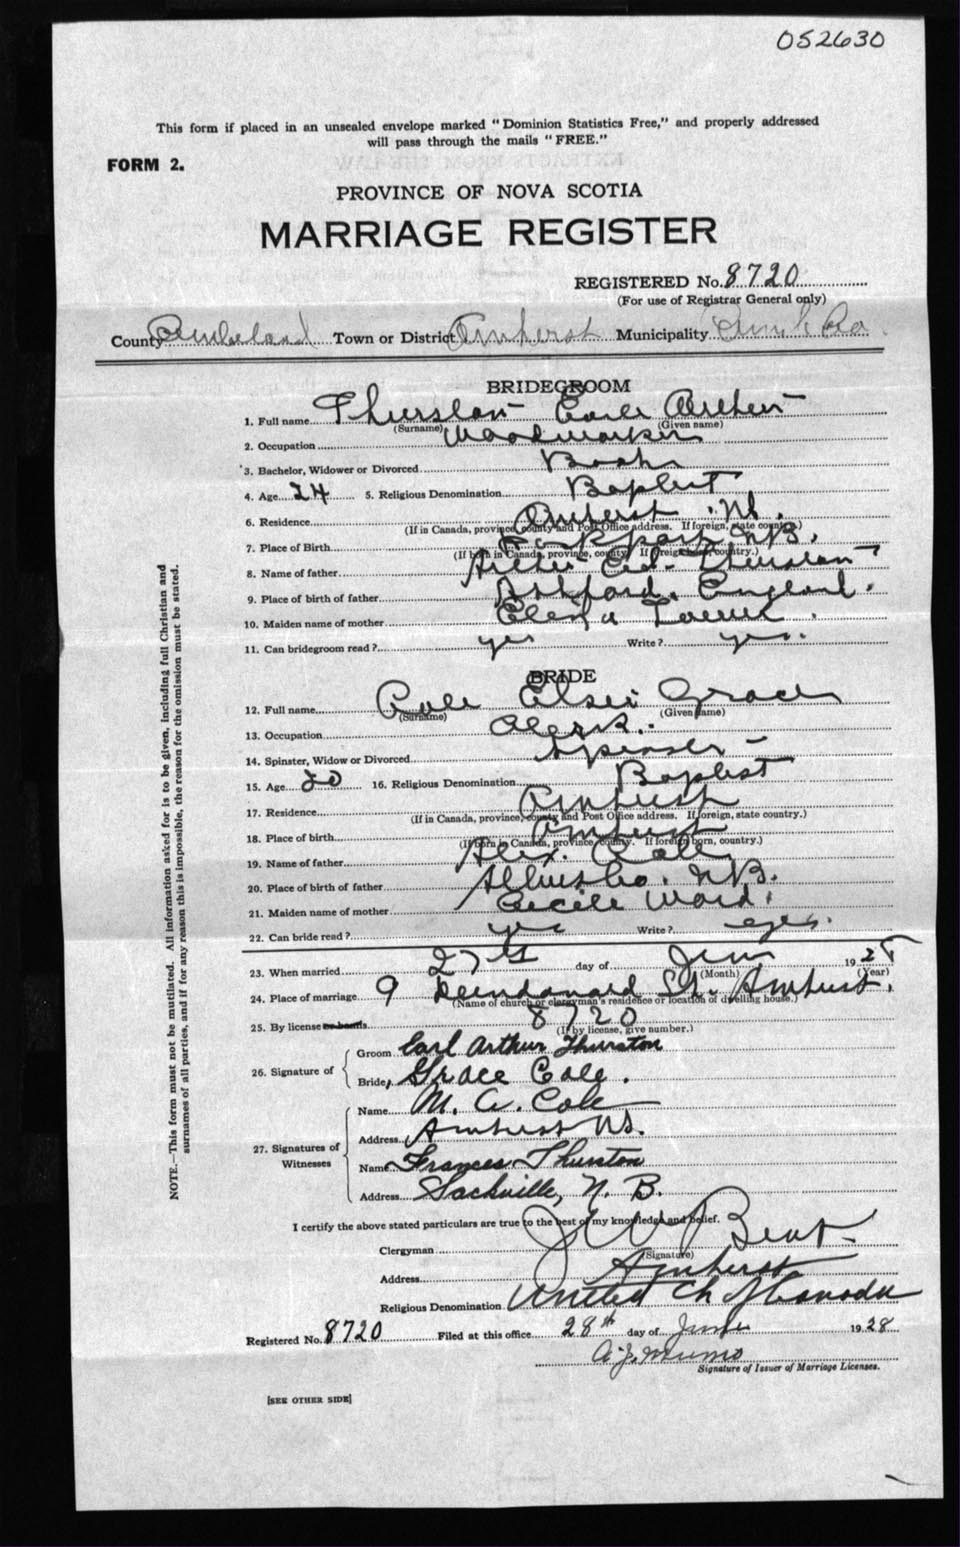 052630
This form if placed in an unsealed envelope marked "Dominion Statistics Free," and properly addressed
will pass through the mails "FREE."
FORM 2.
PROVINCE OF NOVA SCOTIA
MARRIAGE REGISTER
REGISTERED No. 8720
(For use of Registrar General only)
County Cumberland Town or District Amherst Municipality
BRIDEGROOM
1. Full name Thurston Earle Arthur
(Surname) (Given name)
2. Occupation Woodworker
3. Bachelor, Widower or Divorced Bach
4. Age 24 5. Religious Denomination Baptist
6. Residence Amherst N.S.
(If in Canada, province, county and Post Office address. If foreign, state country.)
7. Place of Birth Rockport N.B.
(If born in Canada, province, county. If foreign born, country.)
8. Name of father Arthur Thurston
9. Place of birth of father Ashford, England.
10. Maiden name of mother Tower
11. Can bridegroom read? yes Write? yes.
BRIDE
12. Full name Cole Elsie Grace
(Surname) (Given name)
13. Occupation Clerk.
14. Spinster, Widow or Divorced Spinster
15. Age 20 16. Religious Denomination Baptist
17. Residence Amherst
(If in Canada, province, county and Post Office address. If foreign, state country.)
18. Place of birth Amherst
(If born in Canada, province, county. If foreign born, country.)
19. Name of father Alex. Cole
20. Place of birth of father Albert Co. N.B.
21. Maiden name of mother Cecile Ward.
22. Can bride read? yes Write? yes.
23. When married 27th day of June 1928
(Month) (Year)
24. Place of marriage 9 St. Amherst.
(Name of church or clergyman's residence or location of dwelling house.)
25. By license or banns 8720
(If by license, give number.)
26. Signature of
Groom Earl Arthur Thurston
Bride Grace Cole.
27. Signatures of Witnesses
Name M. A. Cole
Address Amherst N.S.
Name Frances Thurston
Address Sackville, N. B.
I certify the above stated particulars are true to the best of my knowledge and belief.
Clergyman J W Bent
(Signature)
Address Amherst
Religious Denomination United Ch of Canada
Registered No. 8720 Filed at this office 28th day of June 1928
A. J. Munro
Signature of Issuer of Marriage Licenses.
[SEE OTHER SIDE]
NOTE.—This form must not be mutilated. All information asked for is to be given, including full Christian and
surnames of all parties, and if for any reason this is impossible, the reason for the omission must be stated.